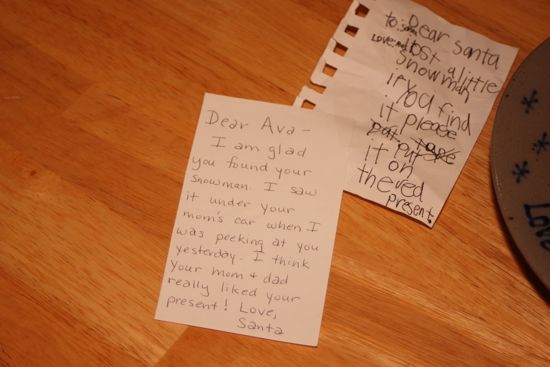 to: Santa
Love: Ava
Dear Santa
I lost a little
snowman
if you find
it please
put tape
it put
it on
the red
present.
Dear Ava -
I am glad
you found your
snowman. I saw
it under your
mom's car when I
was peeking at you
yesterday. I think
your mom + dad
really liked your
present! Love,
Santa
Love